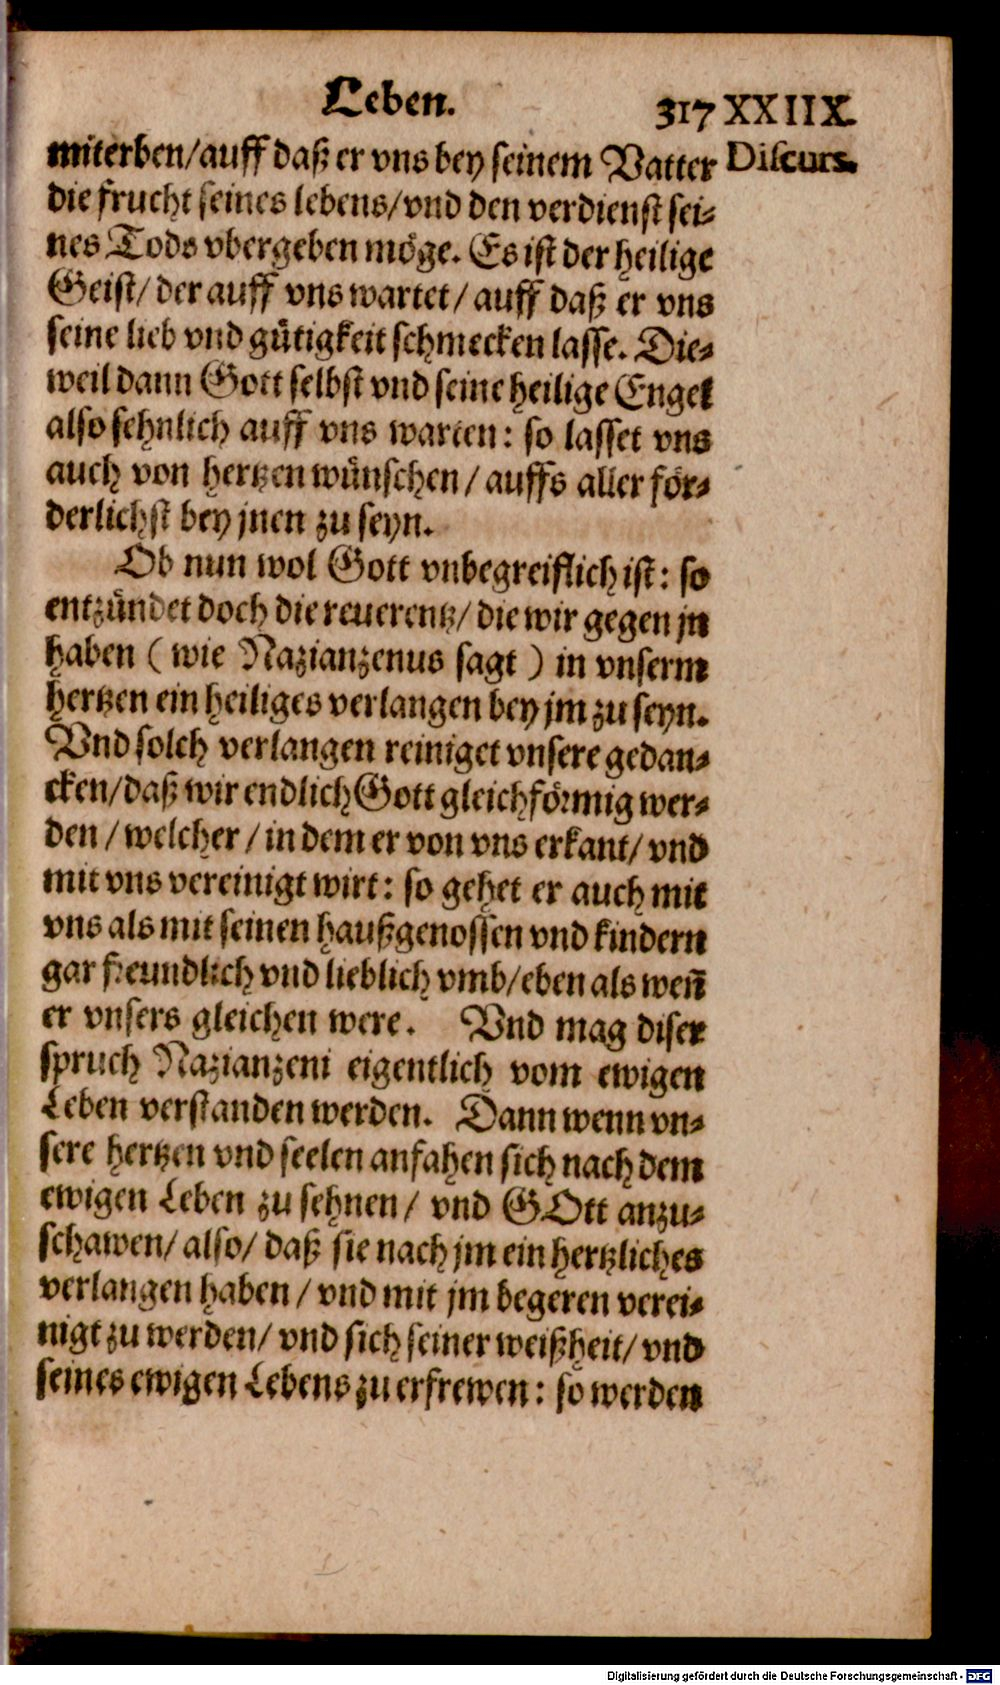 Leben. 317 XXIIX.
miterben/auff daß er vns bey seinem Vatter Discurs.
die frucht seines lebens/vnd den verdienst sei-
nes Tods vbergeben möge. Es ist der heilige
Geist/ der auff vns wartet/ auff daß er vns
seine lieb vnd gütigkeit schmecken lasse. Die-
weil dann Gott selbst vnd seine heilige Engel
also sehnlich auff vns warten: so lasset vns
auch von hertzen wünschen/ auffs aller för-
derlichst bey jnen zu seyn.
Ob nun wol Gott vnbegreiflich ist: so
entzündet doch die reuerentz/ die wir gegen jn
haben ( wie Nazianzenus sagt ) in vnserm
hertzen ein heiliges verlangen bey jm zu seyn.
Vnd solch verlangen reiniget vnsere gedan-
cken/daß wir endlich Gott gleichförmig wer-
den/ welcher/ in dem er von vns erkant/ vnd
mit vns vereinigt wirt: so gehet er auch mit
vns als mit seinen haußgenossen vnd kindern
gar freundlich vnd lieblich vmb/eben als weñ
er vnsers gleichen were. Vnd mag diser
spruch Nazianzeni eigentlich vom ewigen
Leben verstanden werden. Dann wenn vn-
sere hertzen vnd seelen anfahen sich nach dem
ewigen Leben zu sehnen/ vnd GOtt anzu-
schawen/ also/ daß sie nach jm ein hertzliches
verlangen haben/ vnd mit jm begeren verei-
nigt zu werden/ vnd sich seiner weißheit/ vnd
seines ewigen Lebens zu erfrewen: so werden
Digitalisierung gefördert durch die Deutsche Forschungsgemeinschaft - DFG